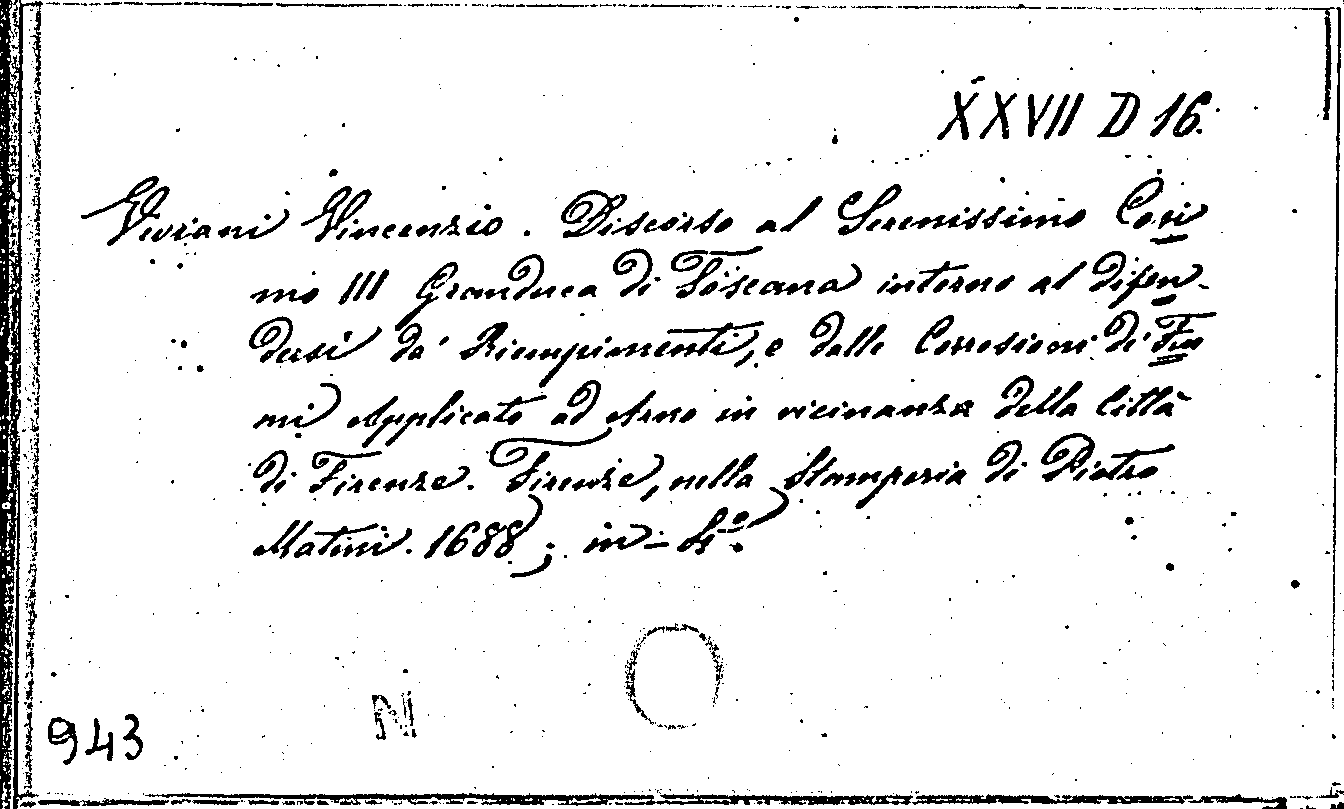 XXVII D 16.
Viviani Vincenzio. Discorso al Serenissimo Cosi
mo III Granduca di Toscana intorno al difen-
dersi da' Riempimenti, e dalle Corrosioni de' Fiu
mi Applicato ad Arno in vicinanza della Città
di Firenze. Firenze, nella Stamperia di Pietro
Matini. 1688; in-4º.
N
943